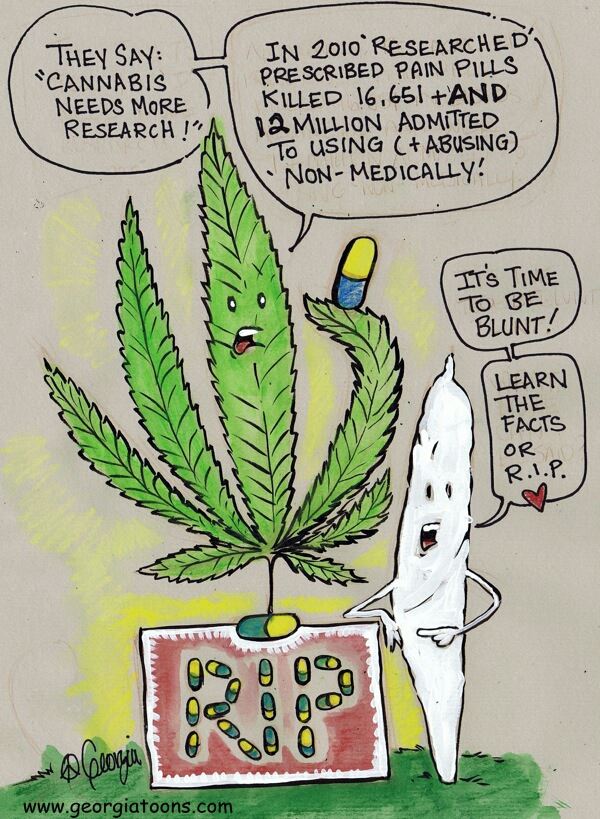 THEY SAY:
"CANNABIS
NEEDS MORE
RESEARCH!"
IN 2010 'RESEARCHED'
PRESCRIBED PAIN PILLS
KILLED 16,651 + AND
12 MILLION ADMITTED
TO USING (+ ABUSING)
NON-MEDICALLY!
IT'S TIME
TO BE
BLUNT!
LEARN
THE
FACTS
OR
R.I.P.
RIP
Georgia
www.georgiatoons.com